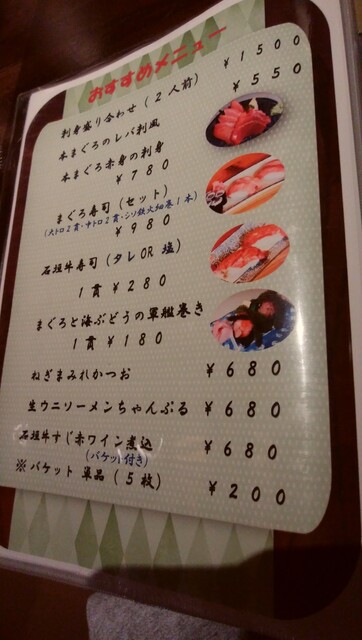 おすすめメニュー
刺身盛り合わせ(2人前) ¥1500
本まぐろのレバ刺風 ¥550
本まぐろ赤身の刺身
¥780
まぐろ寿司(セット)
(大トロ2貫・中トロ2貫・シソ鉄火細巻1本)
¥980
石垣牛寿司(タレOR 塩)
1貫¥280
まぐろと海ぶどうの軍艦巻き
1貫¥180
ねぎまみれかつお ¥680
生ウニソーメンちゃんぷる ¥680
石垣牛すじ赤ワイン煮込 ¥680
(バケット付き)
※バケット 単品(5枚) ¥200